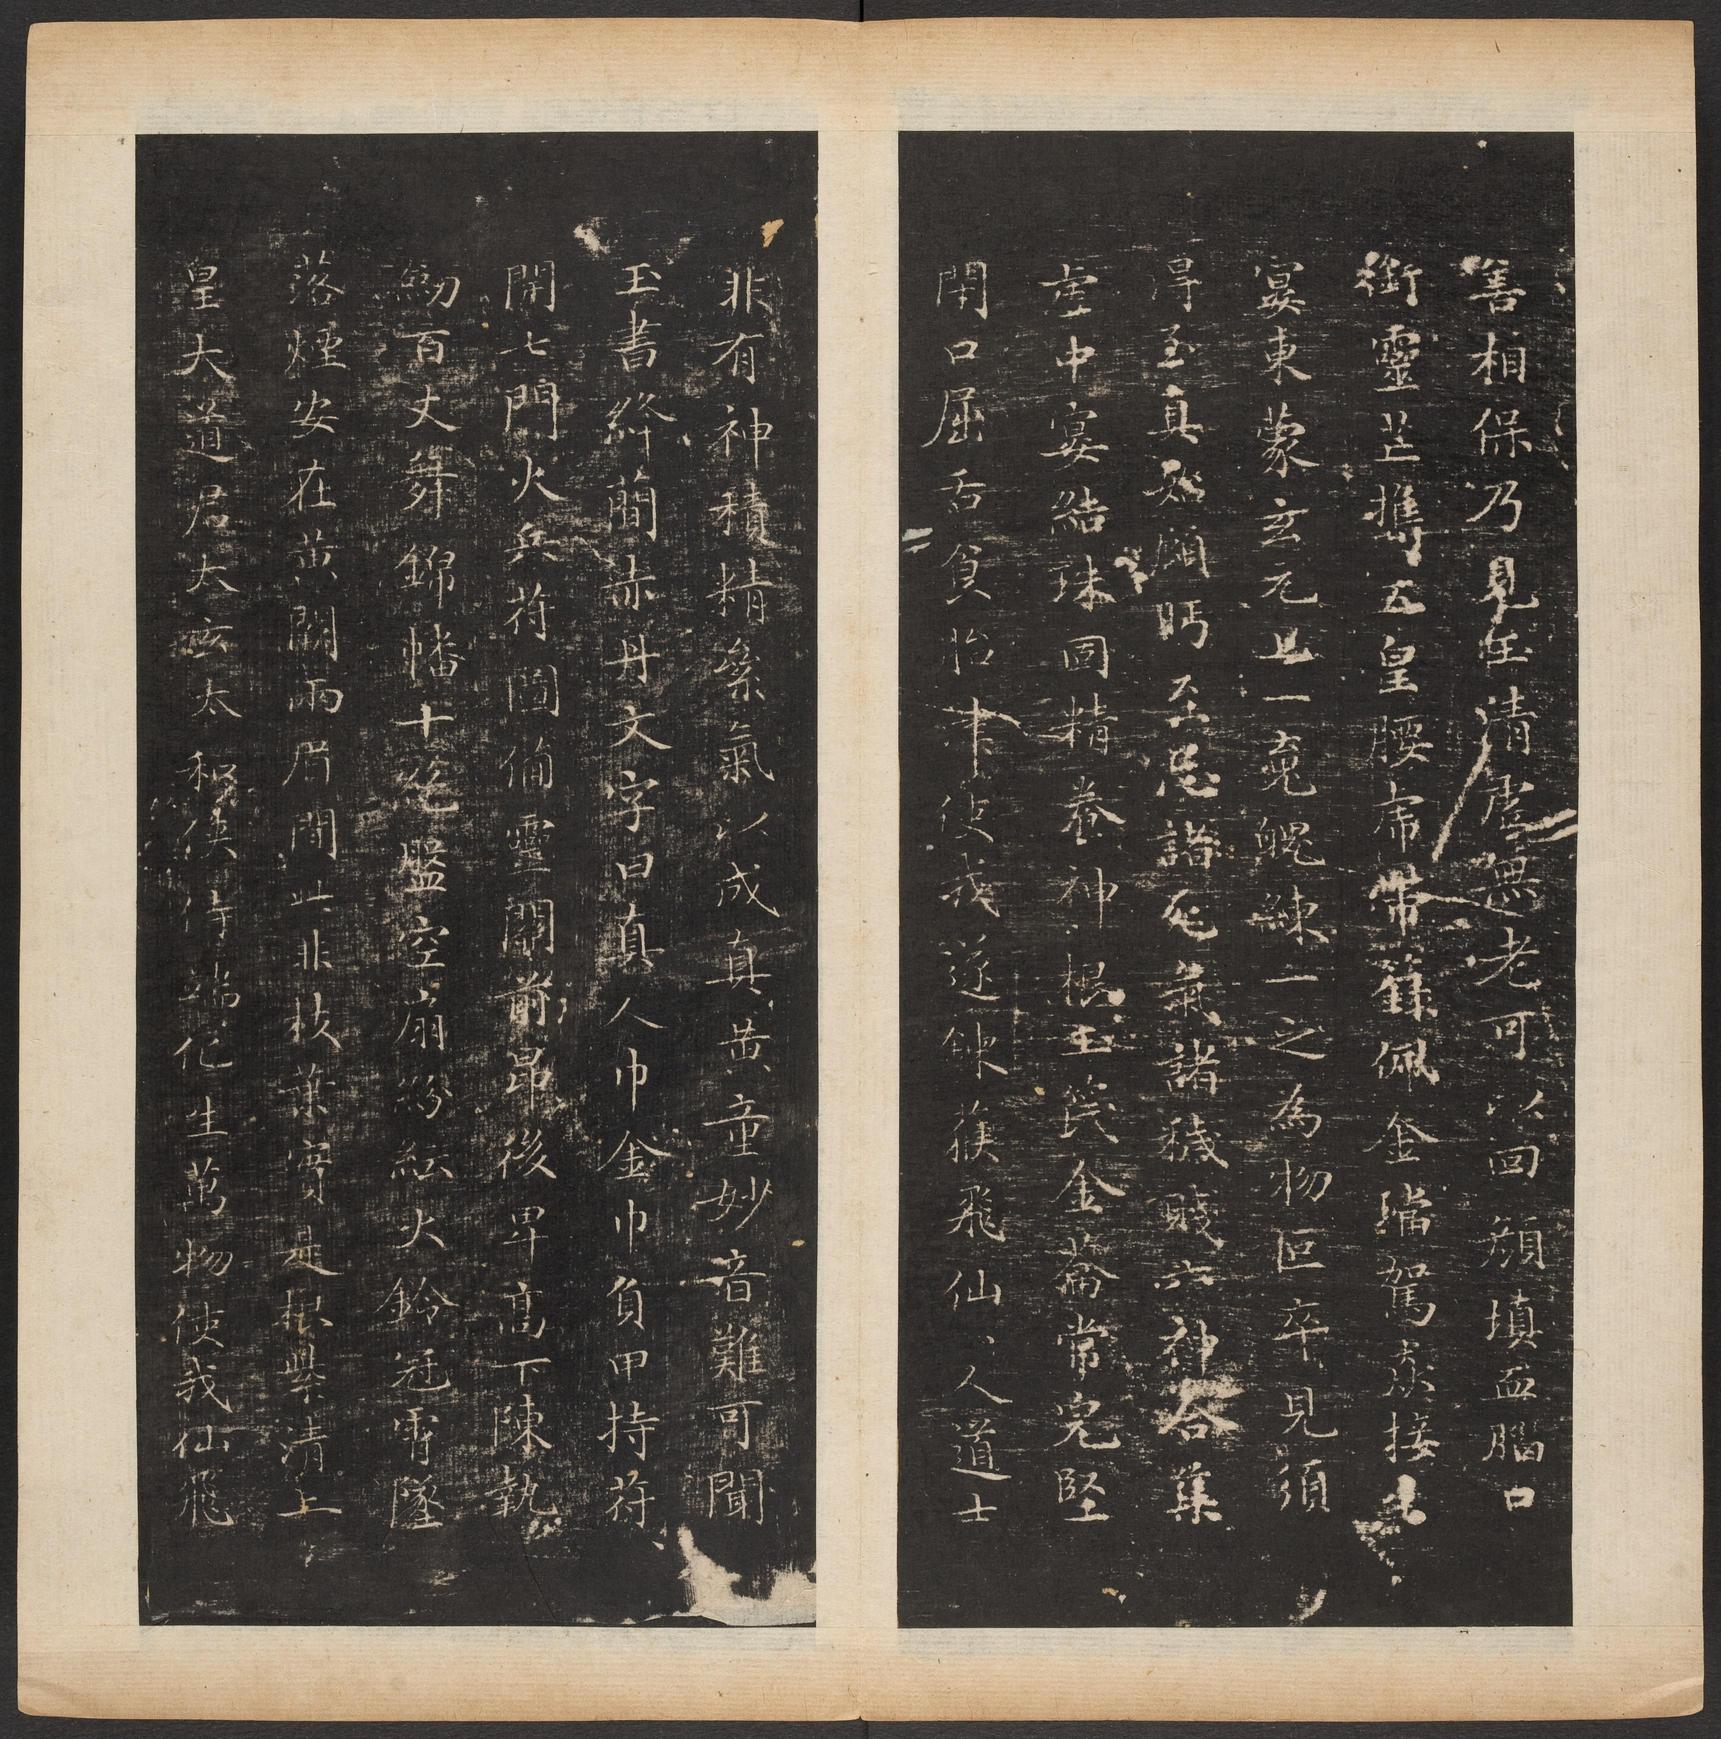 善相保乃見玉清虛無老可以回顏填血腦口
銜靈芒攜五皇腰虎帶籙佩金璫駕欻接生
宴東蒙玄元上一魂魄練一之為物叵卒見須
得至真始顧眄至忌諸死氣諸穢賤六神合集
虛中宴結珠固精養神根玉笢金籥常完堅
閉口屈舌食胎津使我遂鍊獲飛仙仙人道士
非有神積精累氣以成真黃童妙音難可聞
玉書絳簡赤丹文字曰真人巾金巾負甲持符
開七門火兵符圖備靈關前昂後卑高下陳執
劒百丈舞錦幡十絕盤空扇紛紜火鈴冠霄墜
落煙安在黃闕兩眉間此非枝葉實是根紫清上
皇大道君太玄太和俠侍端化生萬物使我仙飛